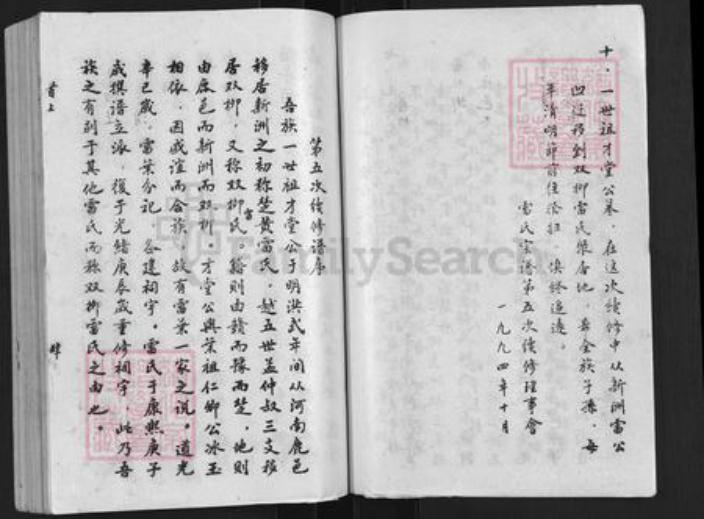 十．一世祖才堂公墓，在这次续修中从新洲雷公
凹迁移到双柳雷氏聚居地，希全族子孫，每
年清明節前往祭扫，慎終追遠。
雷氏宗谱第五次續修理事會
一九九四年十月
第五次續修譜序
吾族一世祖才堂公于明洪武年间从河南鹿邑
移居新洲之初称楚黄雷氏，越五世孟仲叔三支移
居双柳，又称双柳雷氏。籍则由赣而豫而楚，地则
由鹿邑而新洲而双柳，才堂公與葉祖仁卿公冰玉
相依，因戚谊而合族，故有雷葉一家之说。道光
辛巳歲，雷葉分祀，各建祠宇。雷氏于康熙庚子
歲撰谱立派，復于光緒庚辰歲重修祠宇，此乃吾
族之有别于其他雷氏而称双柳雷氏之由也。
首上
肆
FamilySearch